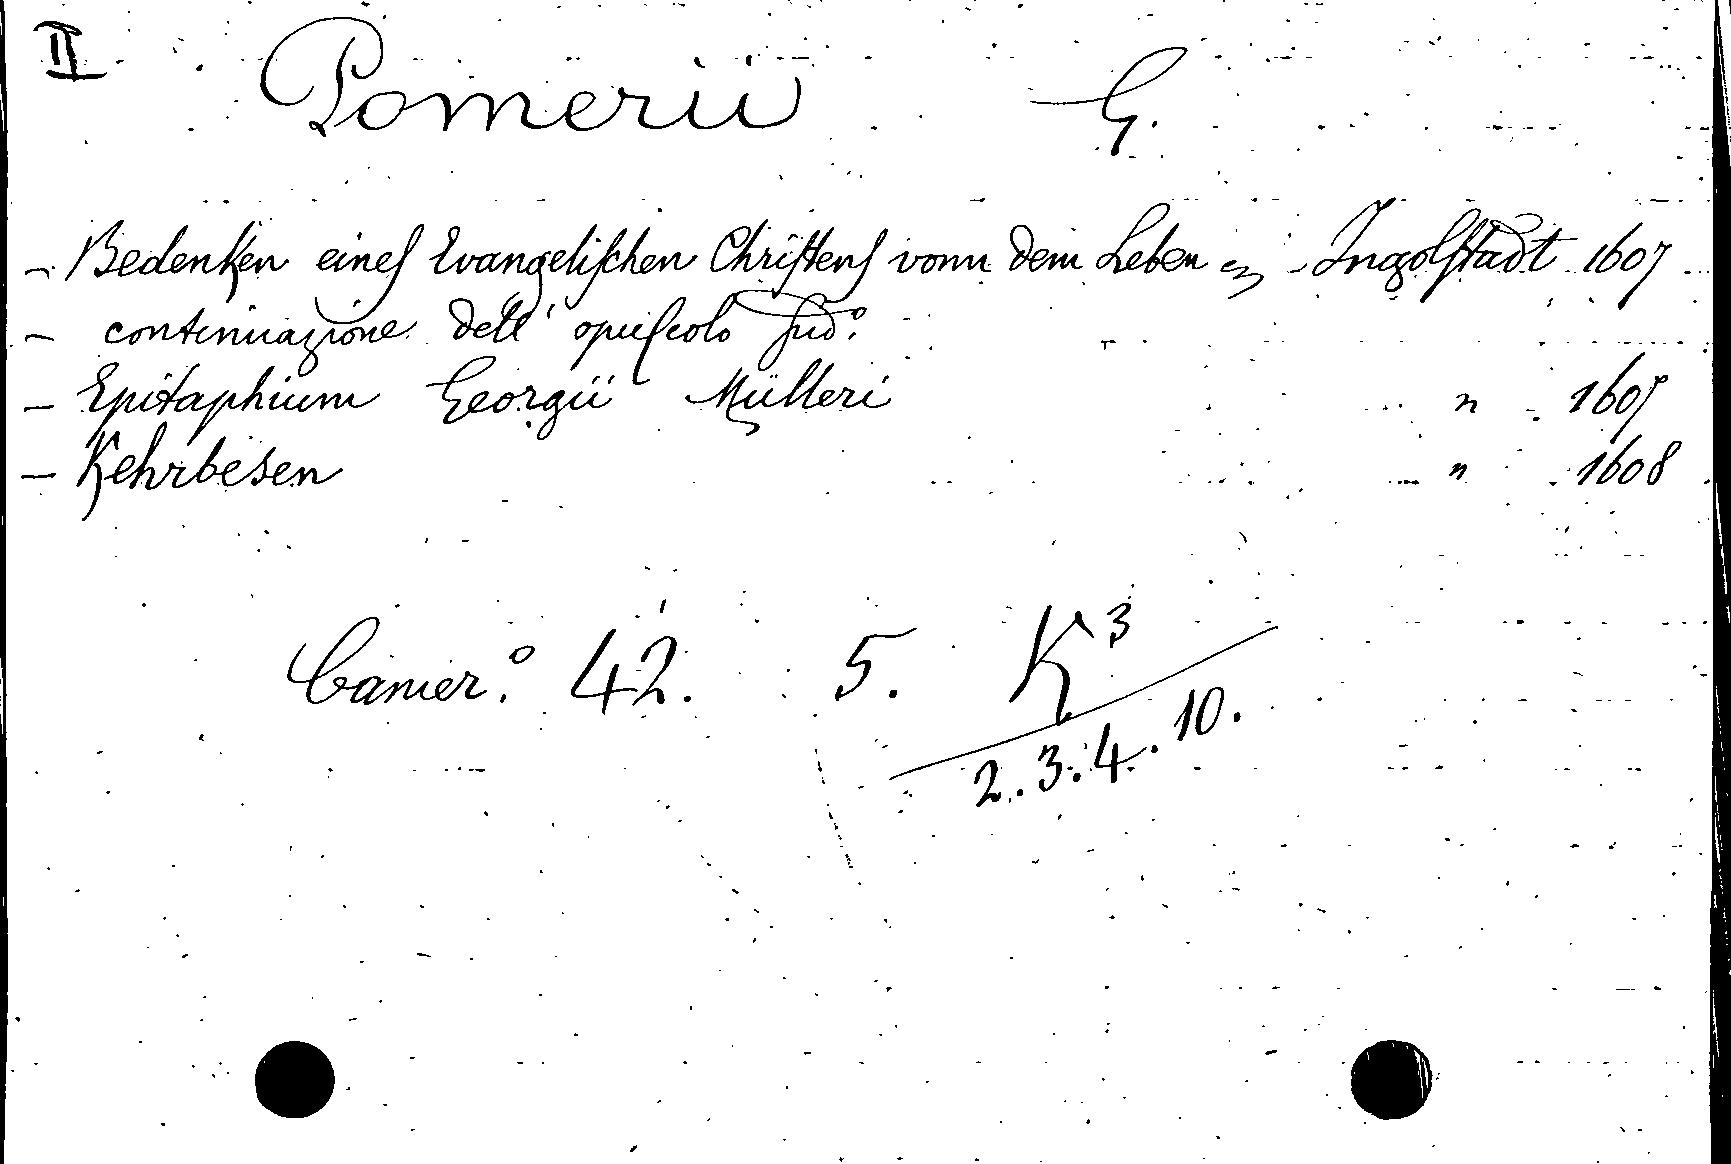 II Pomerii G.
- Bedenken eines Evangelischen Christens vonn dem Leben - Ingolstadt 1607
- continuazione dell' opuscolo sud.º
- Epitaphium Georgii Mülleri " 1607
- Kehrbesen " 1608
Camer.º 42. 5. K³
2.3.4.10.